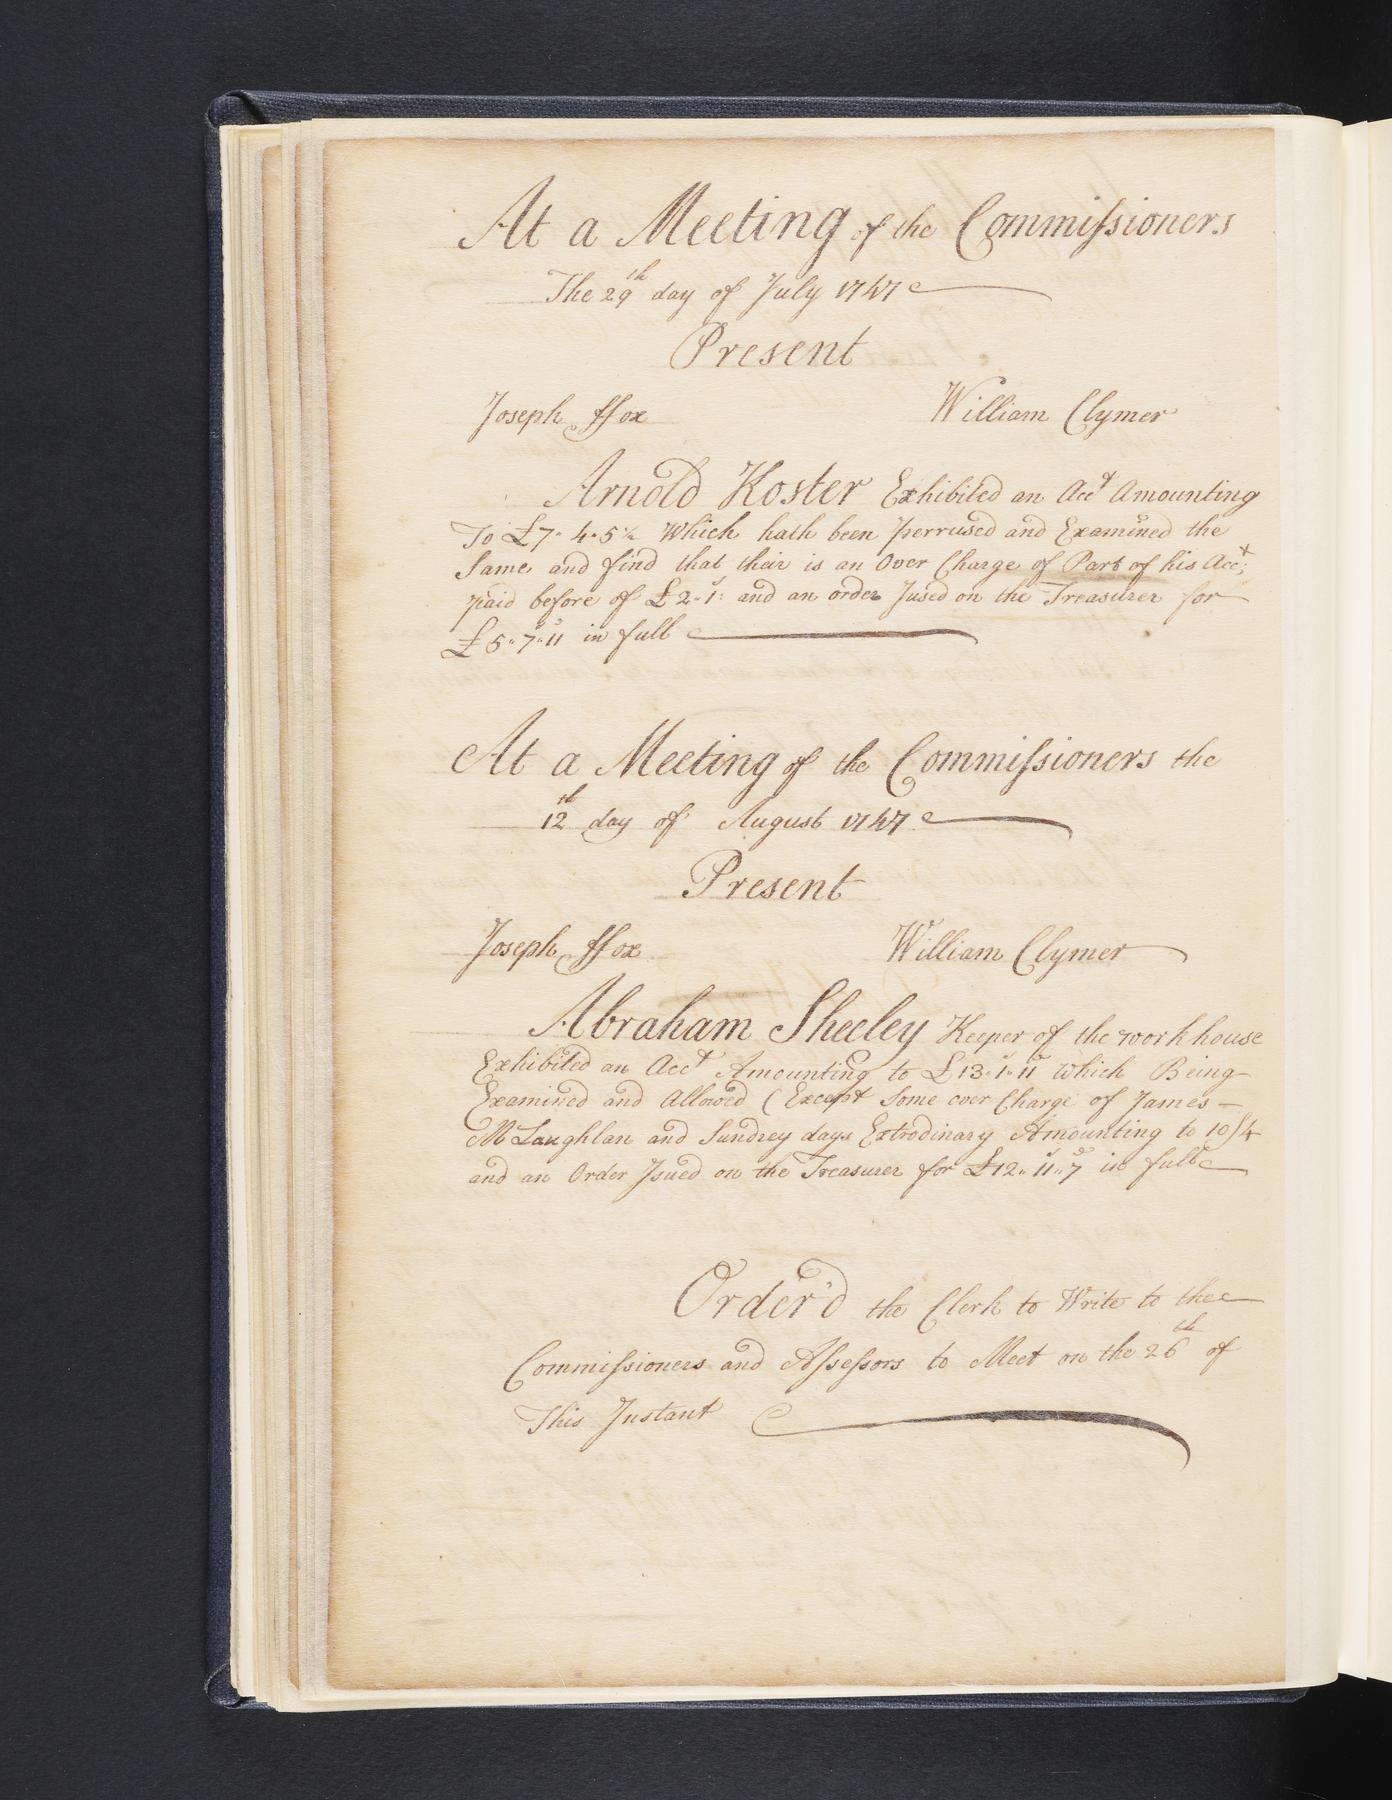 At a Meeting of the Commissioners
The 29th day of July 1747
Present
Joseph ffox William Clymer
Arnold Koster Exhibited an Acct Amounting
To £7" 4"5½ Which hath been perrused and Examined the
Same and find that their is an Over Charge of Part of his Acct;
paid before of £2"1s: and an order Jused on the Treasurer for
£5"7s"11 in full
At a Meeting of the Commissioners the
12th day of August 1747
Present
Joseph ffox William Clymer
Abraham Sheeley Keeper of the workhouse
Exhibited an Acct Amounting to £13"1s"11d Which Being
Examined and Allowed (Except Some over Charge of James
McLaughlan and Sundrey days Extrodinary Amounting to 10/4
and an Order Jsued on the Treasurer for £12"11s"7d in full
Order'd the Clerk to Write to the
Commissioners and Assessors to Meet on the 26th of
This Instant